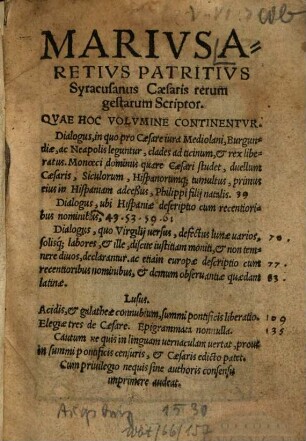 MARIVS A=
RETIVS PATRITIVS
Syracusanus Cæsaris rerum
gestarum Scriptor.
QVAE HOC VOLVMINE CONTINENTVR.
Dialogus, in quo pro Cæsare iura Mediolani, Burgun-
diæ, ac Neapolis leguntur, clades ad ticinum, & rex libe-
ratus. Monœci dominus quare Cæsari studet, duellum
Cæsaris, Siculorum, Hispanorumq; tumultus, primus
eius in Hispaniam adcessus, Philippi filij natalis. 39
Dialogus, ubi Hispaniæ descriptio cum recentiori-
bus nominibus, 49. 53. 59. 61
Dialogus, quo Virgilij uersus, defectus lunæ uarios, 70.
solisq; labores, & ille, discite iustitiam moniti, & non tem-
nere diuos, declarantur. ac etiam europæ descriptio cum 77.
recentioribus nominibus, & demum obseruantiæ quædam 83.
latinæ.
Lusus.
Acidis, & galatheæ connubium, summi pontificis liberatio. 109
Elegiæ tres de Cæsare. Epigrammata nonnulla. 135
Cautum ne quis in linguam vernaculam uertat, prout
in summi pontificis censuris, & Cæsaris edicto patet.
Cum priuilegio nequis sine authoris consensu
imprimere audeat.
1530